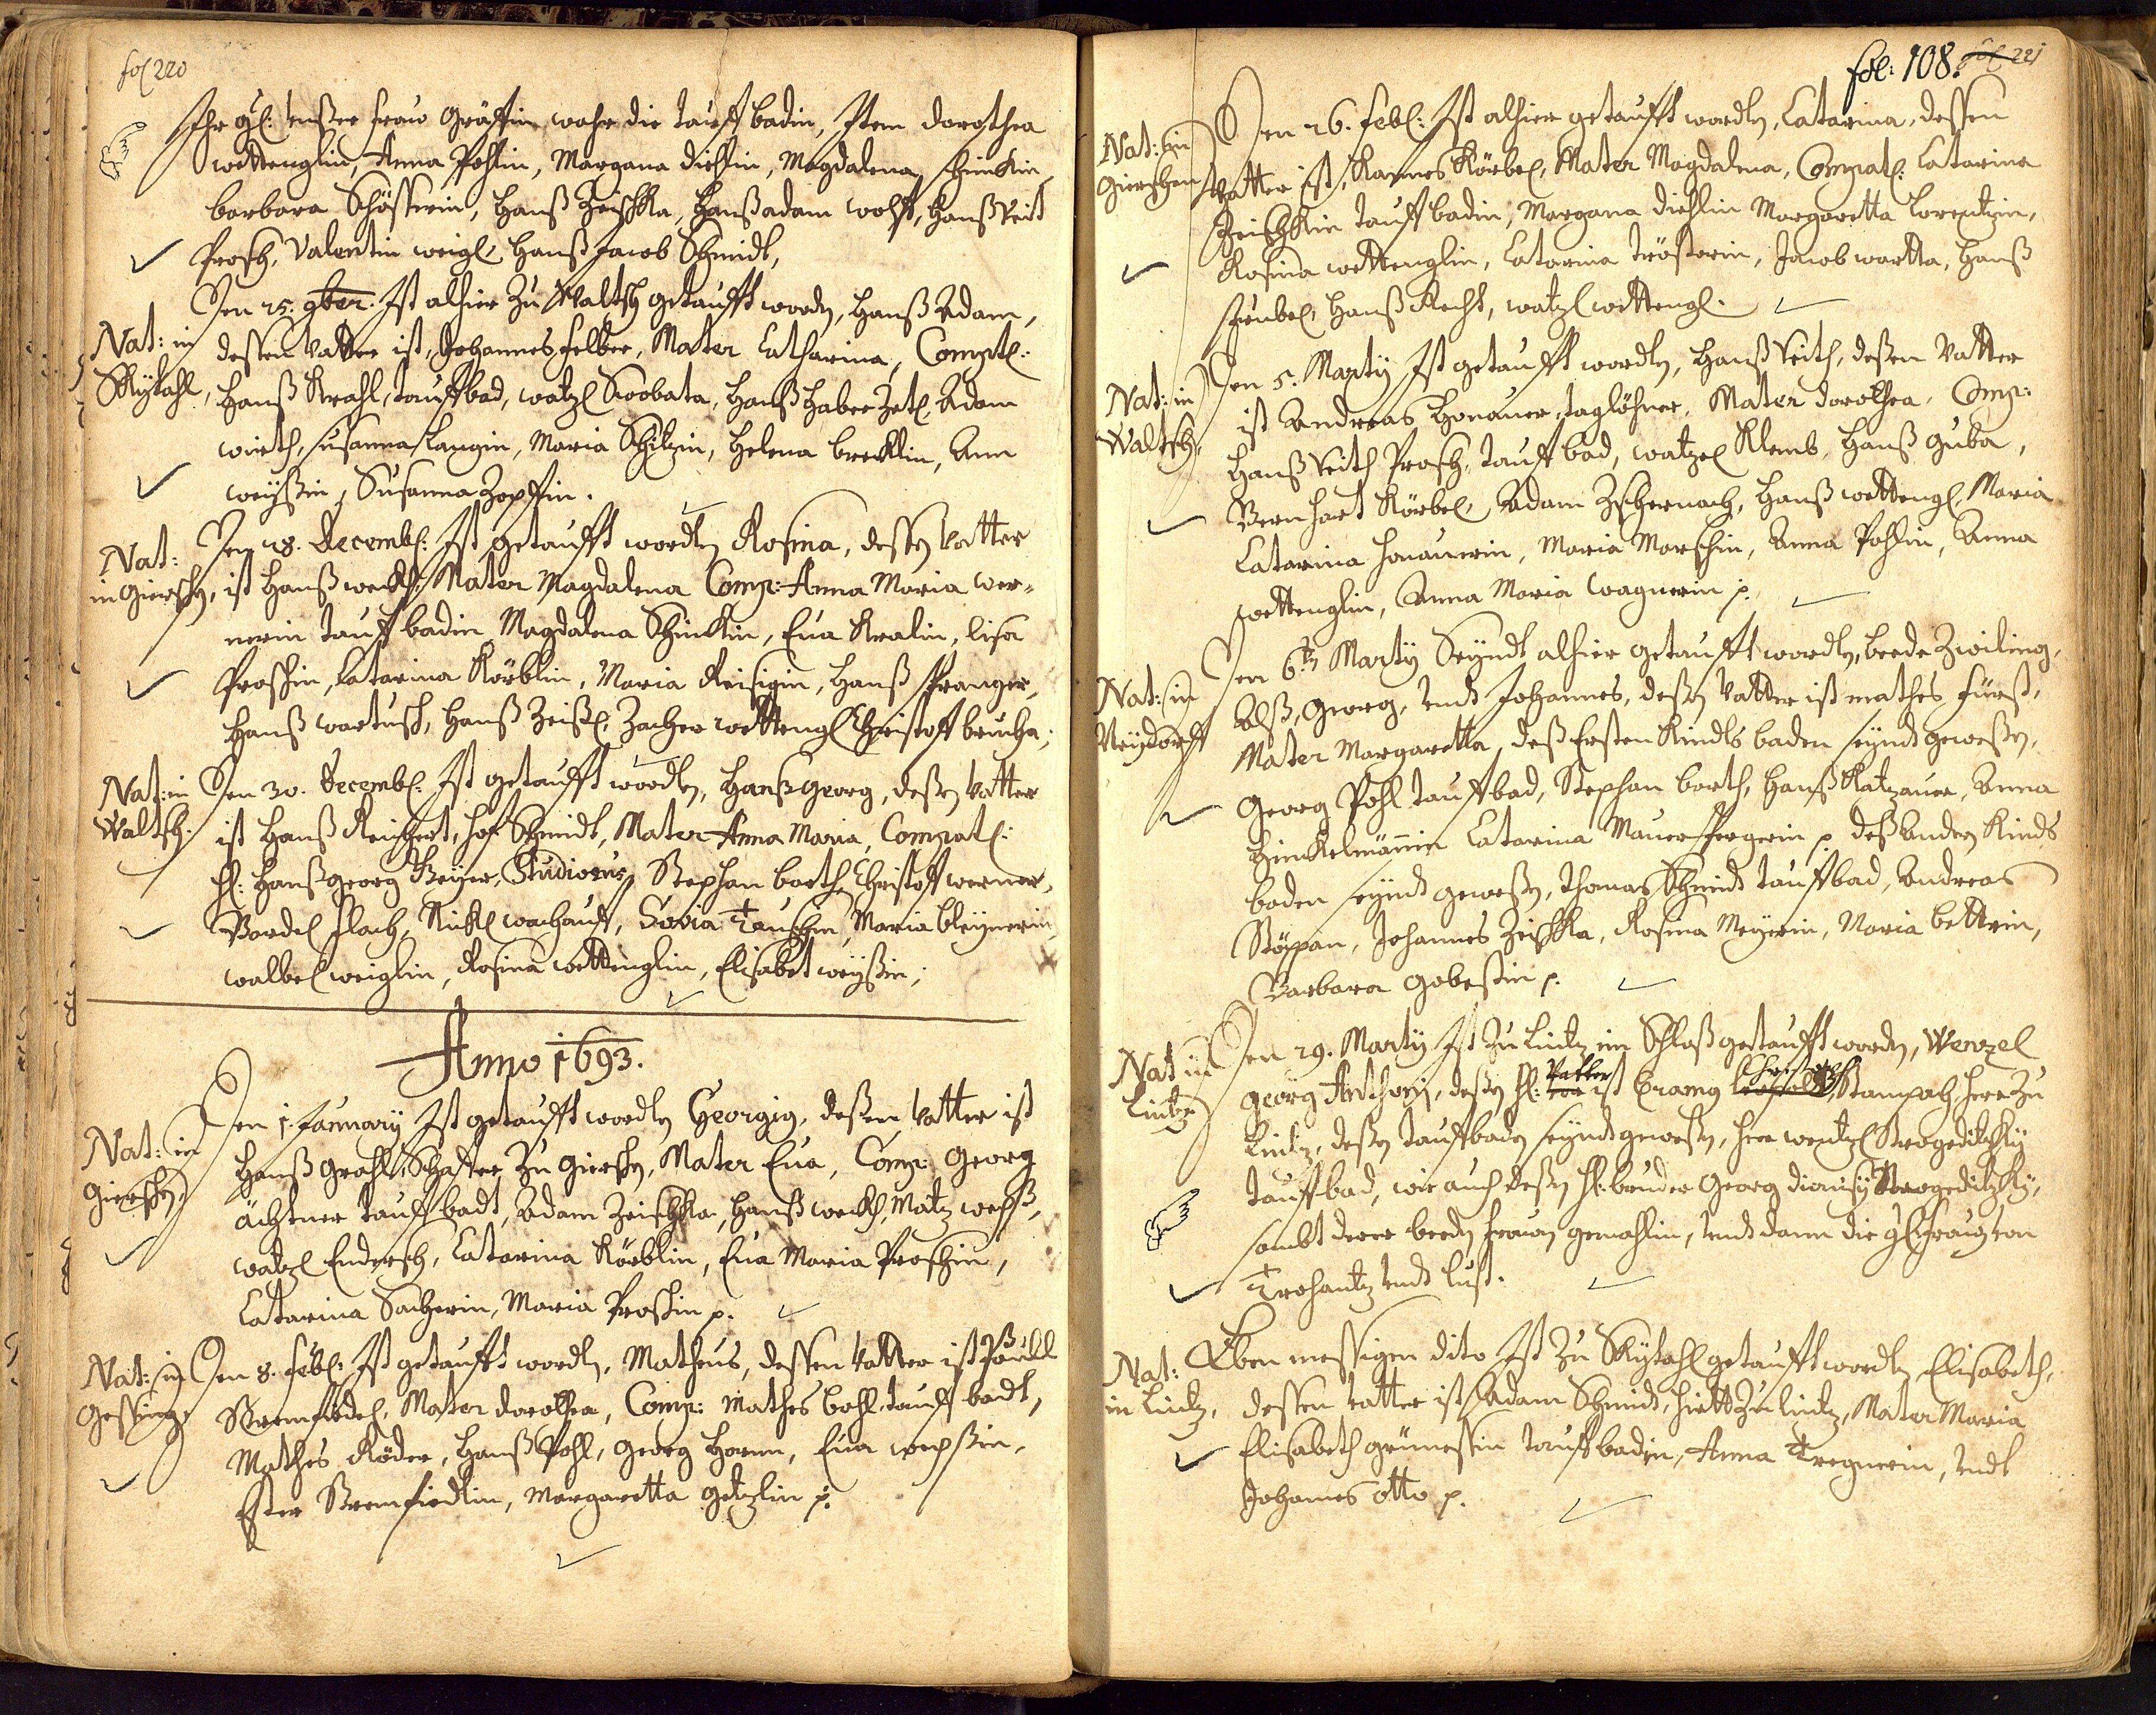 fol 220
Ihr gl: unßer frau Gräffin wahr die tauffbadin, Item dorothea
wettenglin, Anna Pohlin, Margana diehlin, Magdalena Schinkin,
barbara Schösserin, Hanß Zeischka, Hanß adam wolff, Hanß Veit
Prosch, Valentin weigl, Hanß Jacob Schmidt,
Nat: in
Skytahl,
Den 25. 9ber. Ist alhier zu Waltsch getaufft wordn, Hanß Adam,
dessen Vatter ist, Johannes felber, Mater Catharina, Compat:
Hanß Krahl, tauffbad, watzl Swobata, Hanß Haber Zatl, Adam
wirth, susanna Langin, Maria Schitzin, Helena brecklin, Ann
weyßin, Susanna Zopffin.
Nat:
in Gierschn,
Den 28. Decembl: Ist getaufft wordn Rosina, dessen Vatter
ist Hanß weckl, Mater Magdalena Comp: Anna Maria wer-
nerin tauffbadin, Magdalena Schinkin, Eva Kralin, lisa
Proschin, Catarina Körblin, Maria Reisigin, Hanß Pranger,
Hanß wartusch, Hanß Zeißl, Zacher wettengl Christoff brucha;
Nat: in
Waltsch.
Den 30. Decembl: Ist getaufft wordn, Hanß Georg, deßen Vatter
ist Hanß Reichert, Hof Schmidt, Mater Anna Maria, Compat:
hl: Hanß georg Beyer, Studiosus, Stephan barth, Christoff werner,
Bardl flach, Nickl wachauff, Sovia Tauschin, Maria bleynerin
walbel weiglin, Rosina wettenglin, Elisabet weyßin;
Anno 1693.
Nat: in
Gierschn,
Den 1. January Ist getaufft wordn Georgig, deßen Vatter ist
Hanß Grahl, Schaffer zu Gierschn, Mater Eva, Comp: Georg
ächtner tauffbadt, Adam Zeischka, Hanß weckl, Matz weyß,
watzl Endersch, Catarina Körblin, Eva Maria Proschin,
Catarina Sacherin, Maria Proschin p.
Nat: in
Gessing,
Den 8. febl: Ist getaufft wordn, Matheus, dessen Vatter ist Paull
Stremfidel, Mater dorothea, Comp: Mathes bohl tauffbadt,
Mathes Röder, Hanß Pohl, Georg Horn, Eva weyßin,
Ester Stremfiedlin, Margaretta Getzlin p:
fol: 108. fol 221
Nat: in
Gierschen
Den 26. febl: Ist alhier getaufft wordn, Catarina, dessen
Vatter ist, Hannes Körbel, Mater Magdalena, Compat: Catarina
Zeischkin tauffbadin, Margana diehlin Margaretta Lorentzin,
Rosina wettenglin, Catarina tröstorin, Jacob wartta, Hanß
steubel, Hanß Knecht, watzl wettengl.
Nat: in
Waltsch,
Den 5. Marty Ist getaufft wordn, Hanß Veith, deßen Vatter
ist Andreas Honauer, taglöhner, Mater dorothea, Comp:
Hanß Veith Prosch, tauffbad, watzel Klemb, Hanß Guba,
Bernhart Körbel, Adam Zschernach, Hanß wettengl, Maria
Catarina Honauerin, Maria Marschin, Anna Pohlin, Anna
wettenglin, Anna Maria wagnerin p:
Nat: in
Neydorff
Den 6tn Marty Seyndt alhier getaufft wordn, beede Zwiling,
Alß, Georg, undt Johannes, deßen Vatter ist mathes fürst,
Mater Margaretta, deß Ersten Kindts baden seyndt geweßen,
Georg Pohl tauffbad, Stephan barth, Hanß Katzauer, Anna
Hinckelmännin Catarina Mauerspergerin p. deß andern Kindts
baden seyndt geweßn, Thomas Schmidt tauffbad, Andreas
Stöppan, Johannes Zeischka, Rosina Meyerin, Maria bettrin,
Barbara Gobeßin p.
Nat in
Lintz
Den 29. Marty Ist zu Lintz im Schloß getaufft wordn, Wenzel
Georg Anthony, deßen hl: Vatter ist Eramg Christoph Stampach, Herr zu
Lintz, deßen tauffbaden seyndt geweßn, Herr wentzl Strogeditzky
tauffbad, wie auch deßen hl: bruder Georg dionisy Strogeditzky,
sambt derer beedn frauen gemahlin, undt dann die gl: fraun von
Trohantz undt lust.
Nat:
in Lintz,
Eben messigen dito Ist zu Skytahl getaufft wordn Elisabeth,
dessen vatter ist Adam Schmidt, Hirtt zu Lintz, Mater Maria
Elisabeth grünessin tauffbadin, Anna Tregnerin, undt
Johannes otto p.